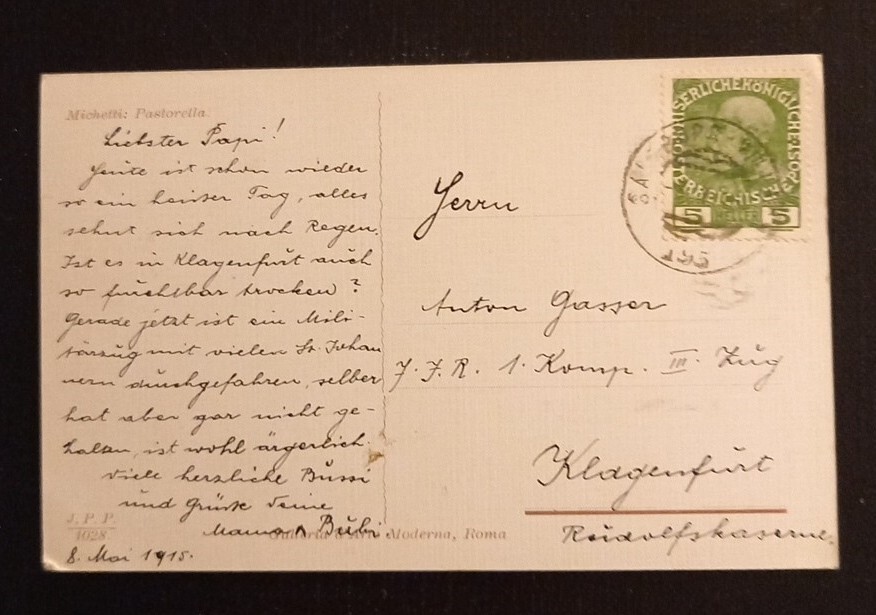 Michetti: Pastorella.
Liebster Papi!
Heute ist schon wieder
so ein heißer Tag, alles
sehnt sich nach Regen.
Ist es in Klagenfurt auch
so furchtbar trocken?
Gerade jetzt ist ein Mili-
tärzug mit vielen St. Johan
nern durchgefahren, selber
hat aber gar nicht ge-
halten, ist wohl ärgerlich.
Viele herzliche Bussi
und Grüße Deine
Mama Bubi.
J. P. P.
4028.
d'Arte Moderna, Roma
8. Mai 1915.
KAISERLICHEKÖNIGLICHE
ÖSTERREICHISCHE
5 HELLER 5
Herrn
Anton Gasser
J. J. R. 1. Komp. III. Zug
Klagenfurt
Rudolfskaserne.